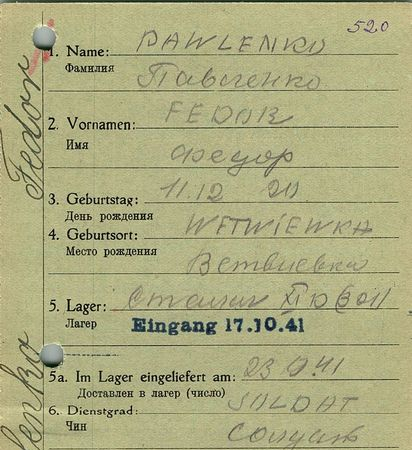 520
1. Name: PAWLENKO
Фамилия Павленко
2. Vornamen: FEDOR
Имя Федор
3. Geburtstag: 11.12 20
День рождения
4. Geburtsort: WETWIEWKA
Место рождения Ветвиевка
5. Lager: Сталаг XI D (311
Лагер Eingang 17.10.41
5a. Im Lager eingeliefert am:
Доставлен в лагер (число)
6. Dienstgrad: SOLDAT
Чин Солдат
Fedor
lenko